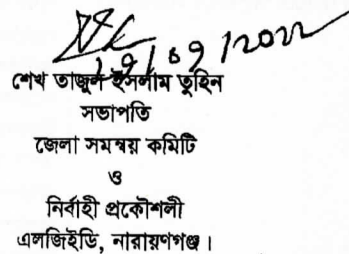 ১৭/০৭/২০২২
শেখ তাজুল ইসলাম তুহিন
সভাপতি
জেলা সমন্বয় কমিটি
ও
নির্বাহী প্রকৌশলী
এলজিইডি, নারায়ণগঞ্জ।